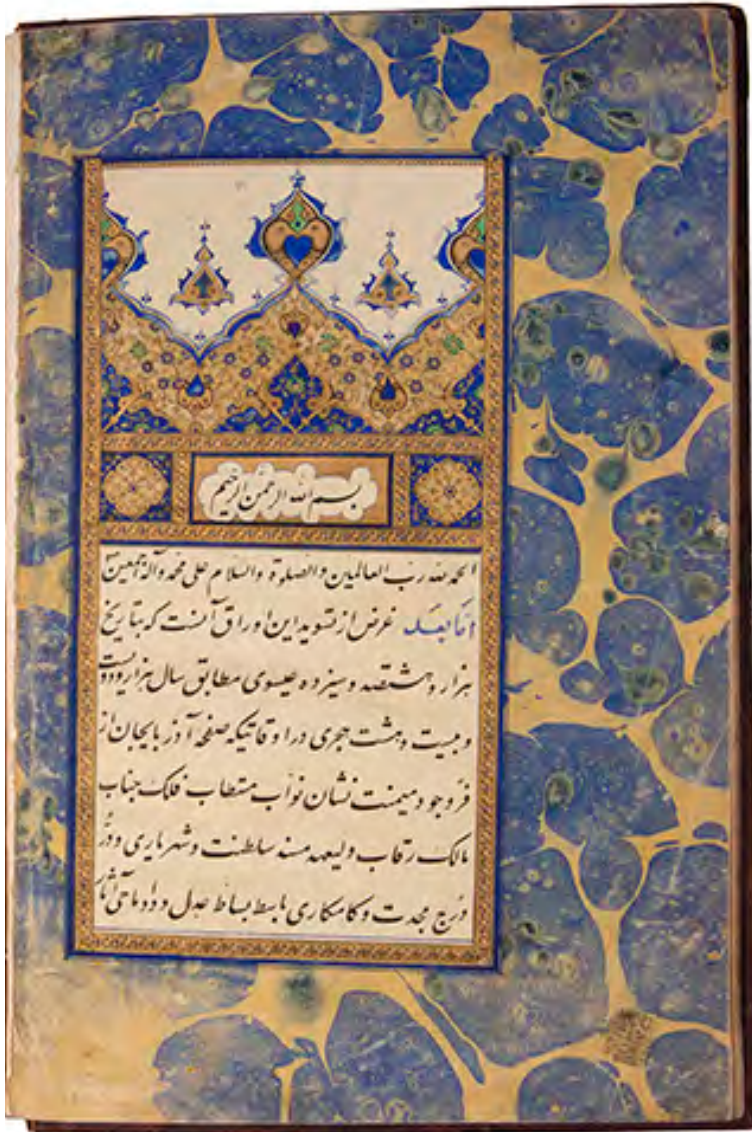 بسم الله الرحمن الرحیم
الحمد لله رب العالمین والصلوة والسلام علی محمد وآله اجمعین
اما بعد غرض از تسوید این اوراق آنست که بتاریخ
هزار و هشتصد و سیزده عیسوی مطابق سال هزار و دویست
و بیست و هشت هجری در اوقاتیکه صفحه آذربایجان از
فر وجود میمنت نشان نواب مستطاب فلک جناب
مالک رقاب ولیعهد مسند سلطنت و شهریاری و در
درج مجدت و کامکاری باسط بساط عدل و داد ماحی آثار